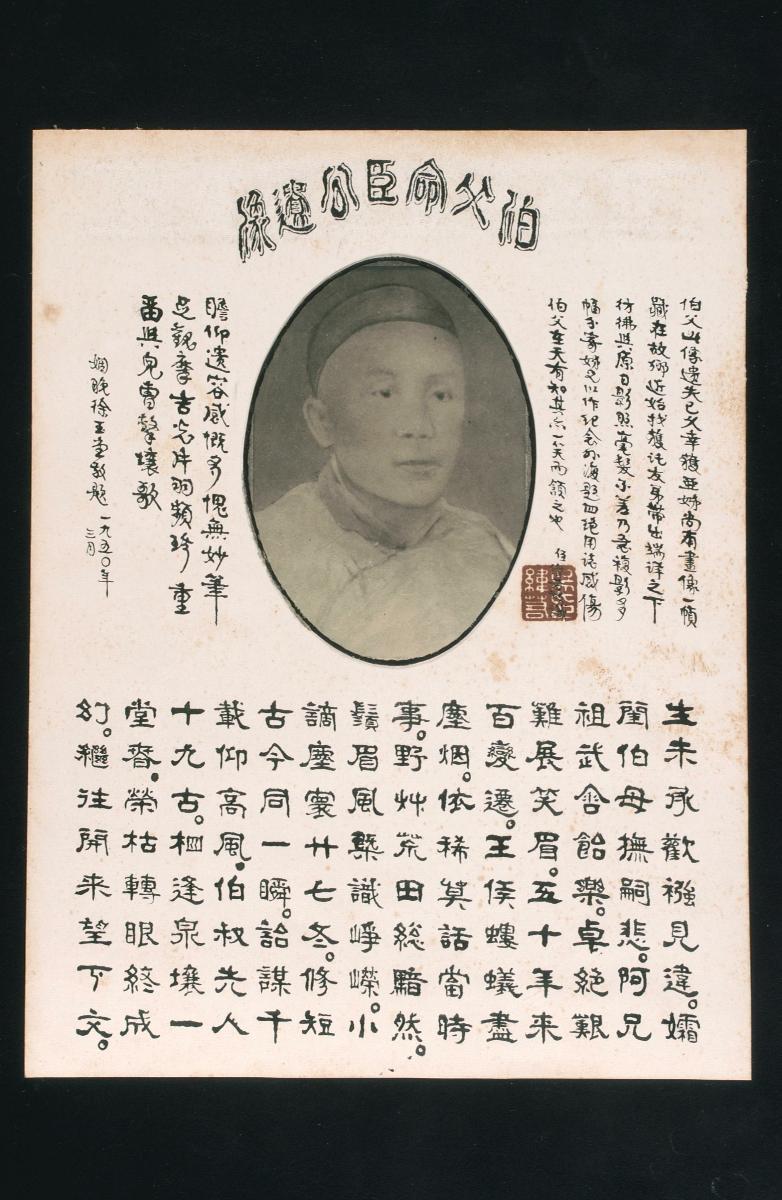 伯父命臣公遺像
伯父此像遺失已久幸獲亞姊尚有畫像一幀
藏在故鄉近始找獲託友弟帶出端详之下
彷彿與原日影照毫髮不差乃急複影多
幅分寄姊兄以作紀念外海題四絕用誌感傷
伯父在天有知其亦一笑而領之也
瞻仰遺容感慨多愧無妙筆
足觀摩吉光片羽頻珍重
留與兒曹擊壤歌
嫻晚徐玉堂敬題 一九五〇年
三月
生未承歡襁見違。孀
閨伯母撫嗣悲。阿兄
祖武含飴樂。卓絕艱
難展笑眉。五十年來
百變遷。王侯螻蟻盡
塵烟。依稀莫話當時
事。野艸荒田総黯然。
鬚眉風槩識崢嶸。小
謫塵寰廿七冬。修短
古今同一瞬。詒謀千
載仰高風。伯叔先人
十九古。相逢泉壤一
堂沓。榮枯轉眼終成
幻。繼往開來望下交。